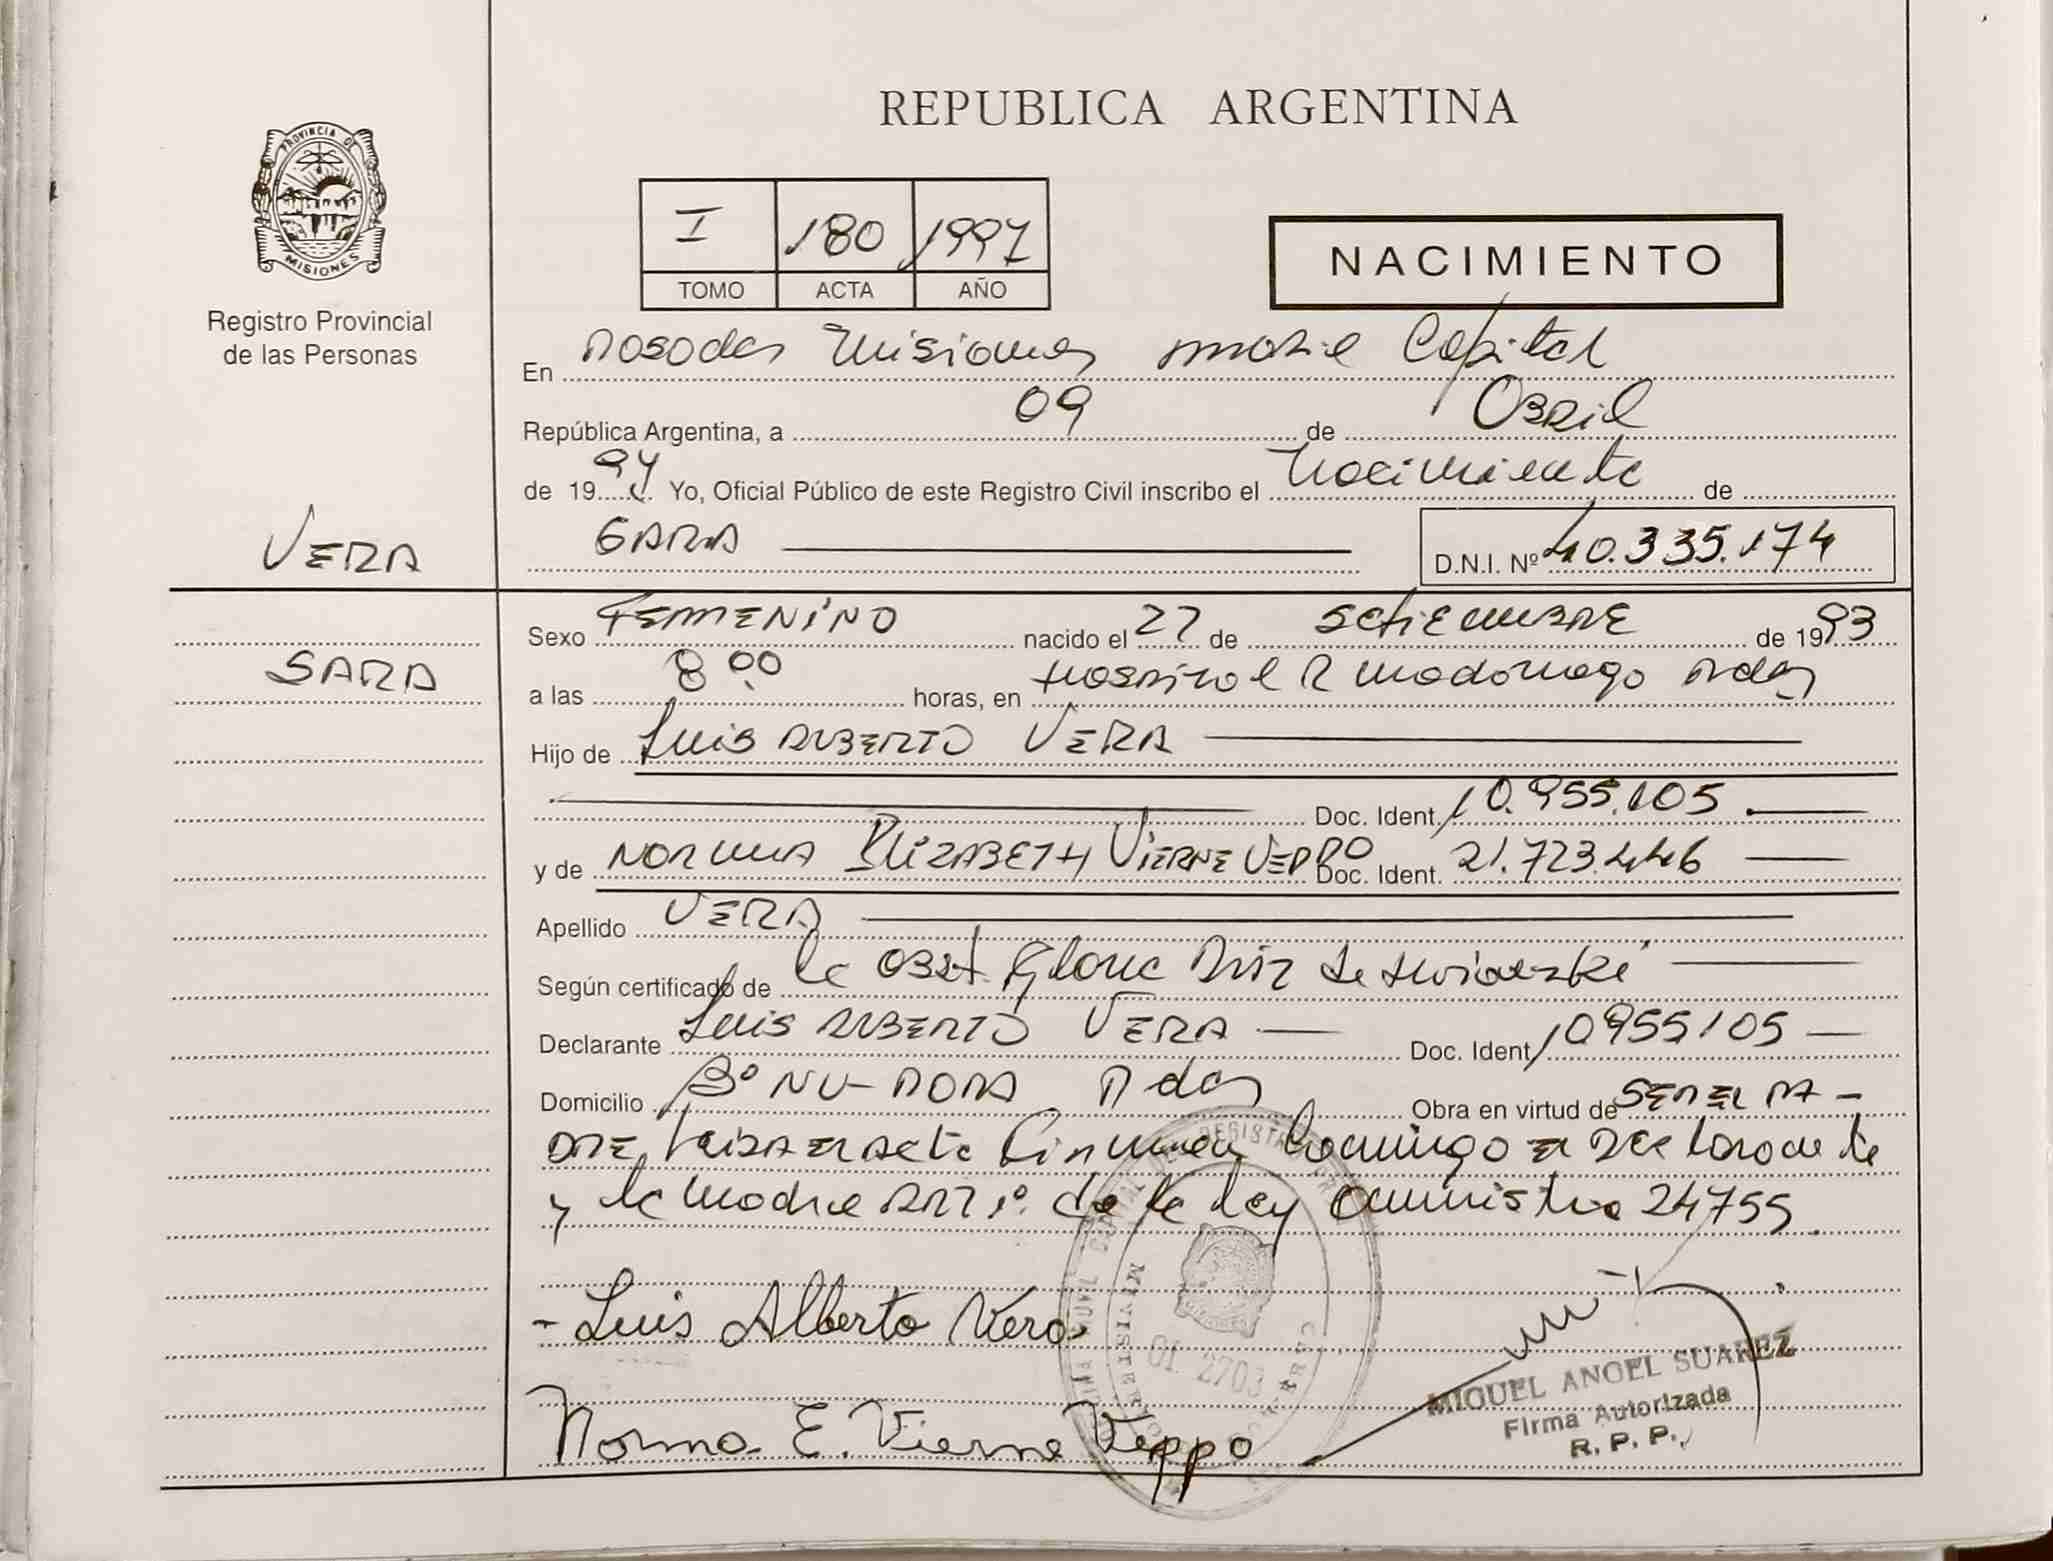 REPUBLICA ARGENTINA
PROVINCIA DE
MISIONES
Registro Provincial
de las Personas
I 180 1997
TOMO ACTA AÑO
NACIMIENTO
En Posadas Misiones Capital
República Argentina, a 09 de Abril
de 1997 Yo, Oficial Público de este Registro Civil inscribo el Nacimiento de
SARA D.N.I. Nº 40.335.174
VERA
SARA
Sexo FEMENINO nacido el 27 de SETIEMBRE de 1993
a las 8 00 horas, en Hospital R Madariaga Pdas
Hijo de Luis ALBERTO VERA
Doc. Ident. 10.955.105
y de NORMA ELIZABETH VIERNE VEPPO Doc. Ident. 21.723.446
Apellido VERA
Según certificado de la Obst. Gloria de
Declarante Luis ALBERTO VERA Doc. Ident. 10955105
Domicilio Bº NU-PORA Pdas Obra en virtud de SER EL PA-
DRE el declarante
y la Madre ART 1º de la ley 24755
Luis Alberto Vera
Norma E. Vierne Veppo
01 2703
MIGUEL ANGEL SUAREZ
Firma Autorizada
R. P. P.